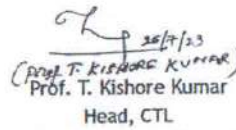 25/7/23
(Prof T. KISHORE KUMAR)
Prof. T. Kishore Kumar
Head, CTL